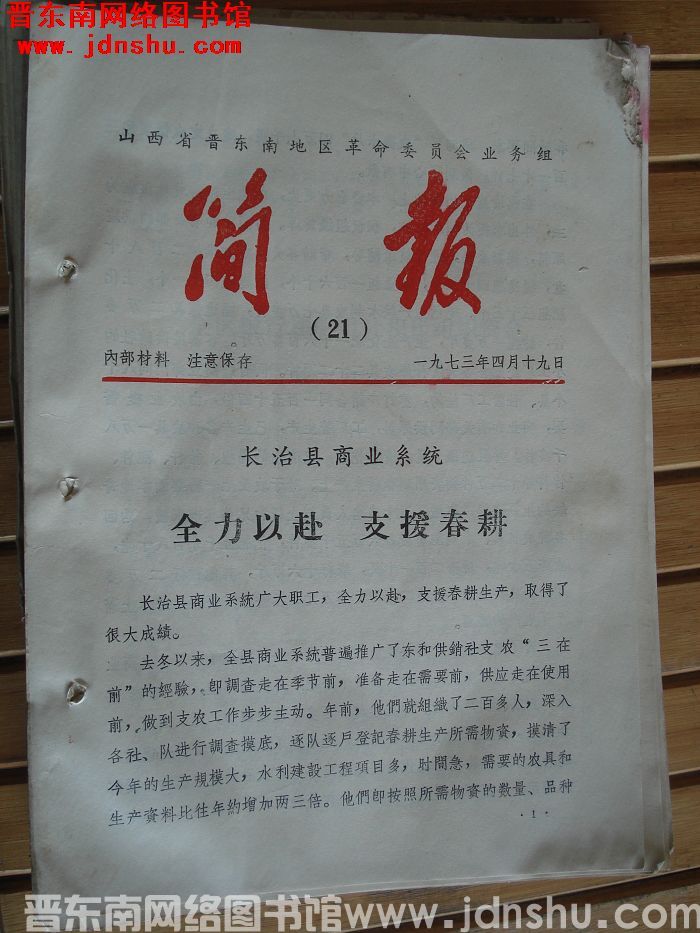 晋东南网络图书馆
www.jdnshu.com
山西省晋东南地区革命委员会业务组
简报
(21)
內部材料 注意保存 一九七三年四月十九日
长治县商业系统
全力以赴 支援春耕
长治县商业系統广大职工，全力以赴，支援春耕生产，取得了
很大成績。
去冬以来，全县商业系統普遍推广了东和供銷社支农“三在
前”的經驗，即調查走在季节前，准备走在需要前，供应走在使用
前，做到支农工作步步主动。年前，他們就組織了二百多人，深入
各社、队进行調查摸底，逐队逐戶登記春耕生产所需物資，摸清了
今年的生产規模大，水利建設工程項目多，时間急，需要的农具和
生产資料比往年約增加两三倍。他們即按照所需物資的数量、品种
·1·
晋东南网络图书馆www.jdnshu.com